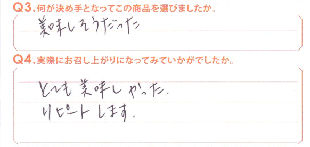 Q3.何が決め手となってこの商品を選びましたか。
美味しそうだった
Q4.実際にお召し上がりになってみていかがでしたか。
とても美味しかった.
リピートします.